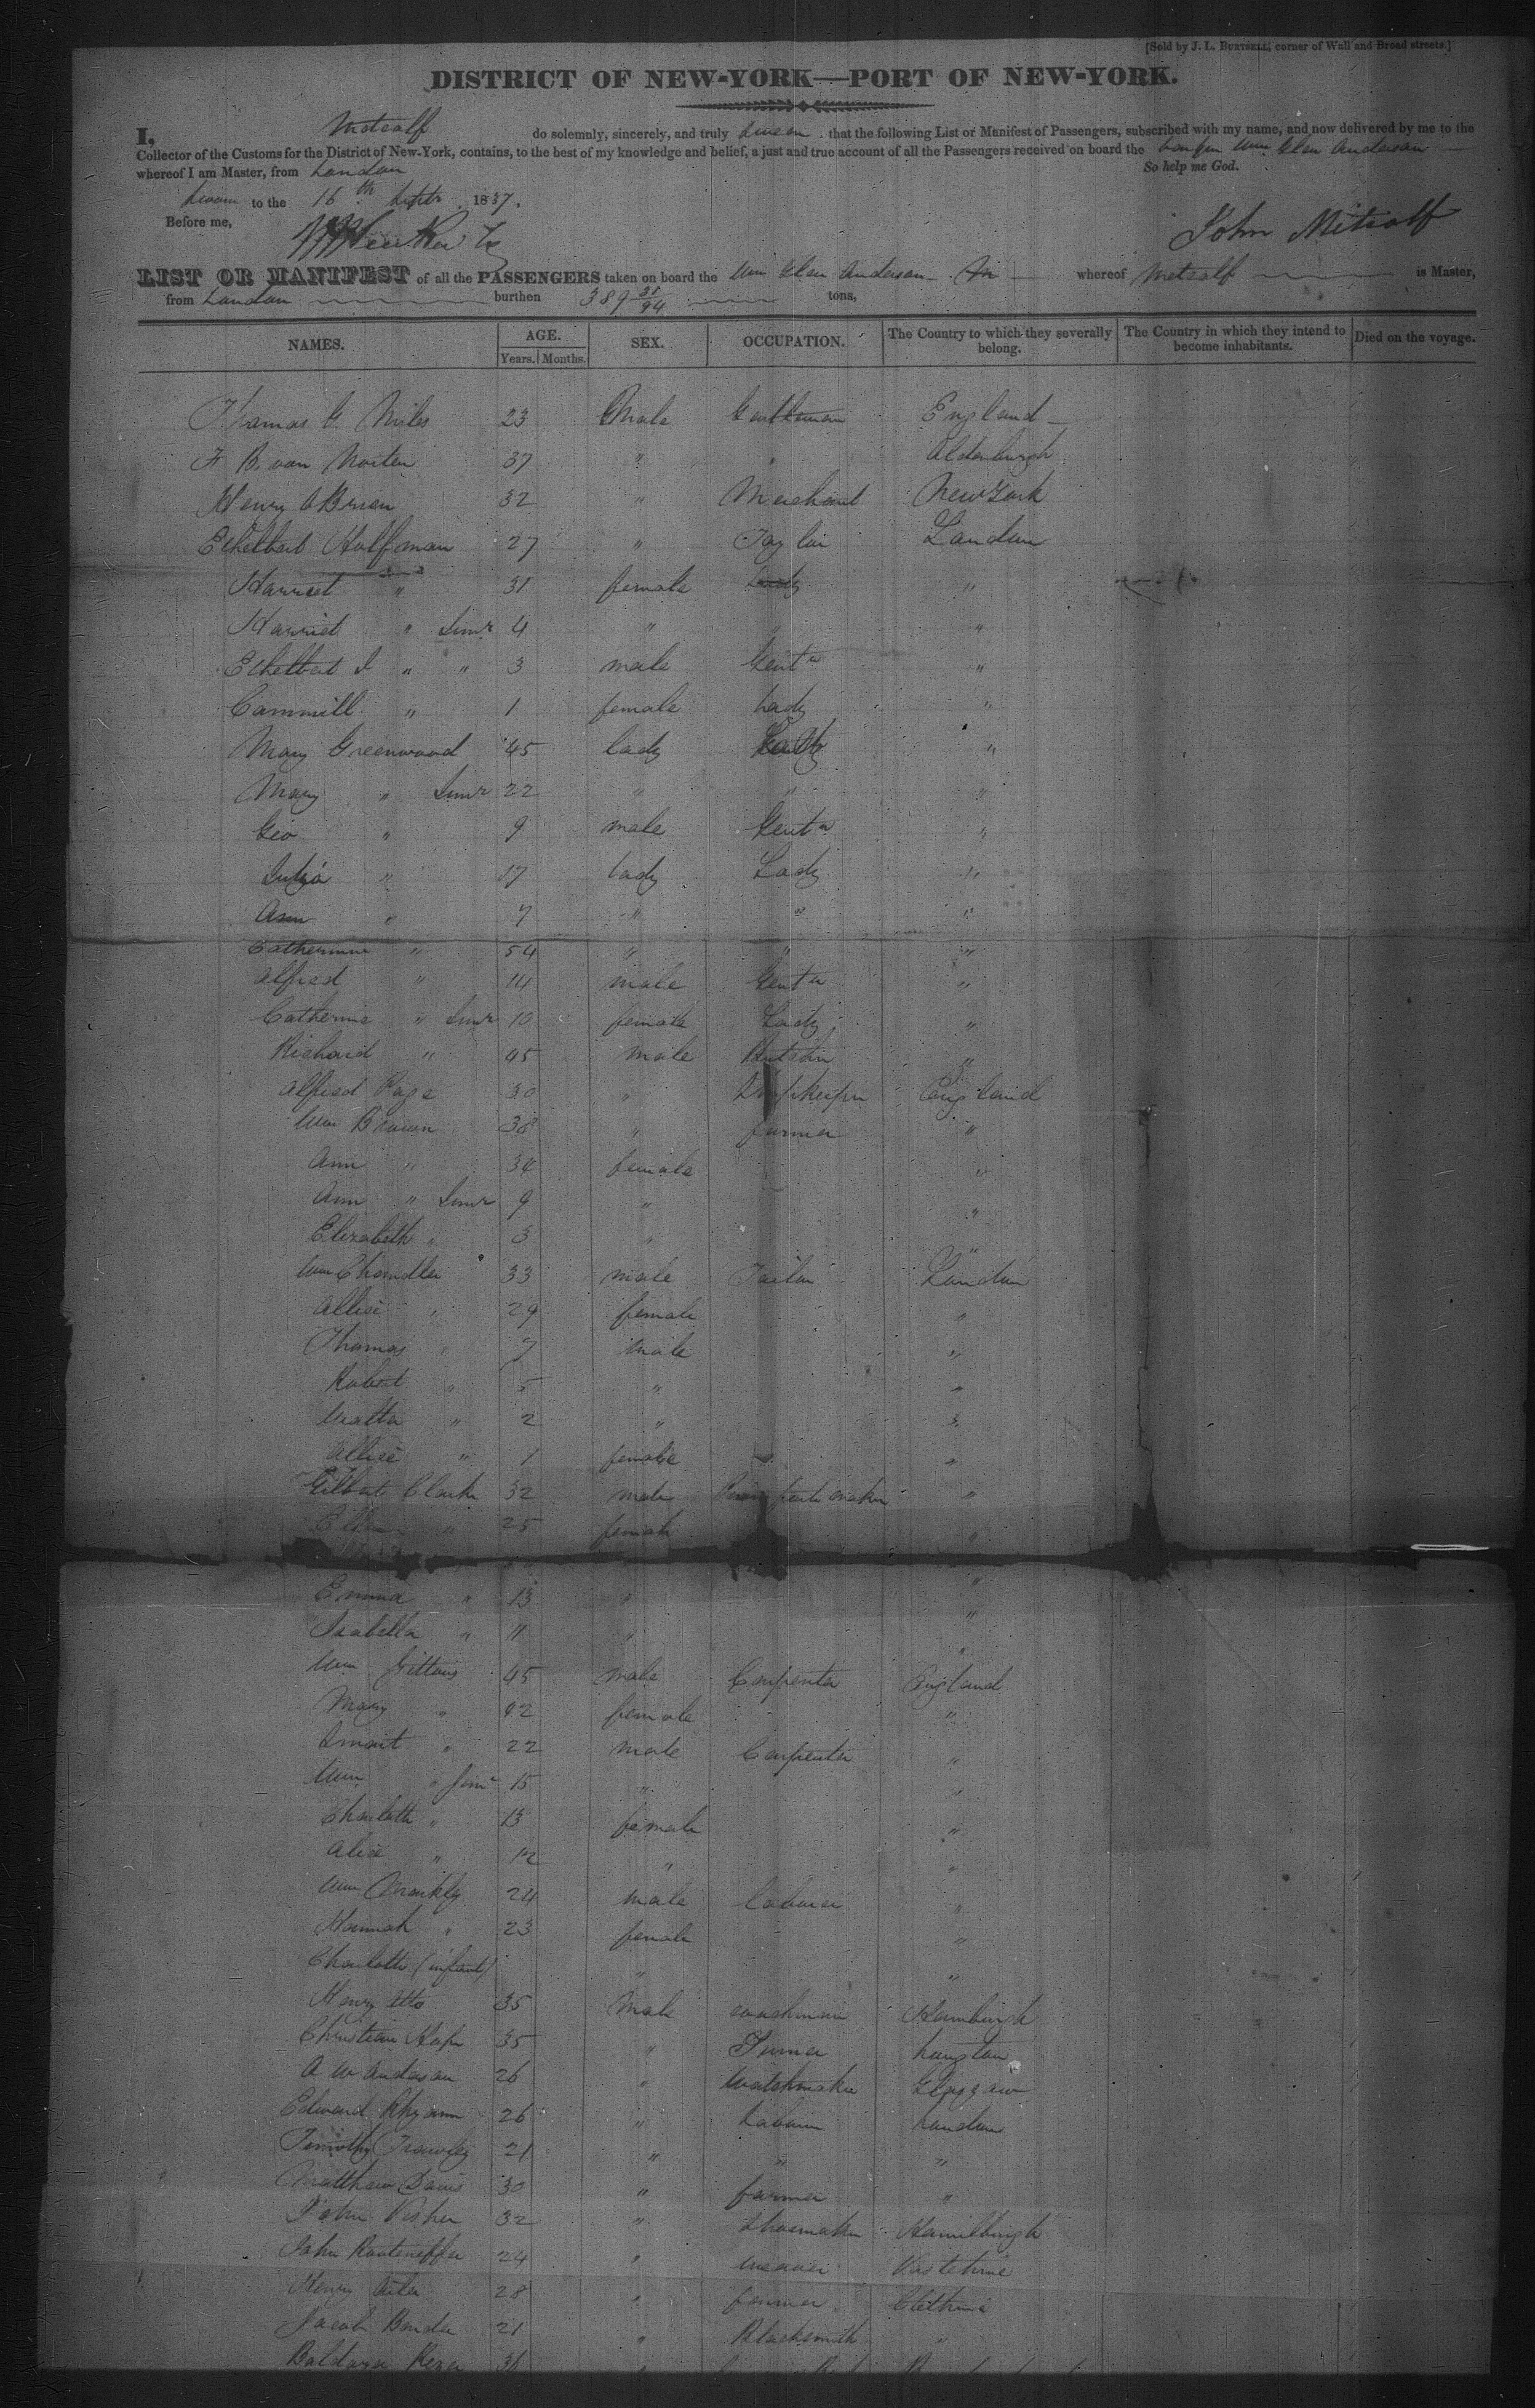 [Sold by J. L. BURTSELL, corner of Wall and Broad streets.]
DISTRICT OF NEW-YORK—PORT OF NEW-YORK.
I, Metcalf do solemnly, sincerely, and truly swear that the following List or Manifest of Passengers, subscribed with my name, and now delivered by me to the
Collector of the Customs for the District of New-York, contains, to the best of my knowledge and belief, a just and true account of all the Passengers received on board the Wm Glen Anderson
whereof I am Master, from London So help me God.
Sworn to the 16th Septr 1837.
Before me,
John Metcalf
LIST OR MANIFEST of all the PASSENGERS taken on board the Wm Glen Anderson whereof Metcalf is Master,
from London burthen 389 31/94 tons,
NAMES. AGE. SEX. OCCUPATION. The Country to which they severally belong. The Country in which they intend to become inhabitants. Died on the voyage.
Years. Months.
Thomas G. Miles 23 Male Gentleman England
F B. van Norten 37 " " Oldenburgh
Henry OBrien 32 " Merchant New York
Ethelbert Halfman 27 " Taylor London
Harriet " 31 female Lady "
Harriet " Junr 4 " " "
Ethelbert J " " 3 male Gentn "
Cammill " 1 female Lady "
Mary Greenwood 45 lady "
Mary " Junr 22 " " "
Geo " 9 male Gentn "
Julia " 17 lady Lady "
Ann " 7 " " "
Catherine " 54 " " "
Alfred " 14 male Gentn "
Catherine " Junr 10 female Lady "
Richard " 45 male Butcher "
Alfred Page 30 " England
Wm Brown 38 " farmer "
Ann " 34 female "
Ann " Junr 9 " "
Elizabeth " 3 " "
Wm Chandler 33 male Tailor London
Allice " 29 female "
Thomas " 7 male "
Robert " 5 " "
Walter " 2 " "
Allice " 1 female "
Gilbert Clark 32 male "
Ellen " 25 female "
Emma " 13 " "
Isabella " 11 " "
Wm Gittens 45 male Carpenter England
Mary " 42 female "
Smart " 22 male Carpenter "
Wm " Junr 15 " "
Charlotte " 13 female "
Alice " 12 " "
Wm 24 male labourer "
Hannah " 23 female "
Charlotte (infant) " "
Henry Otto 35 Male coachman Hamburgh
Christian 35 " Turner
A W Anderson 26 " Watchmaker Glasgow
Edward 26 " Labourer London
Timothy 21 " " "
Matthew Davis 30 " farmer "
John 32 " Shoemaker
John 24 " weaver
Henry 28 " farmer
Jacob Bender 21 " Blacksmith "
36